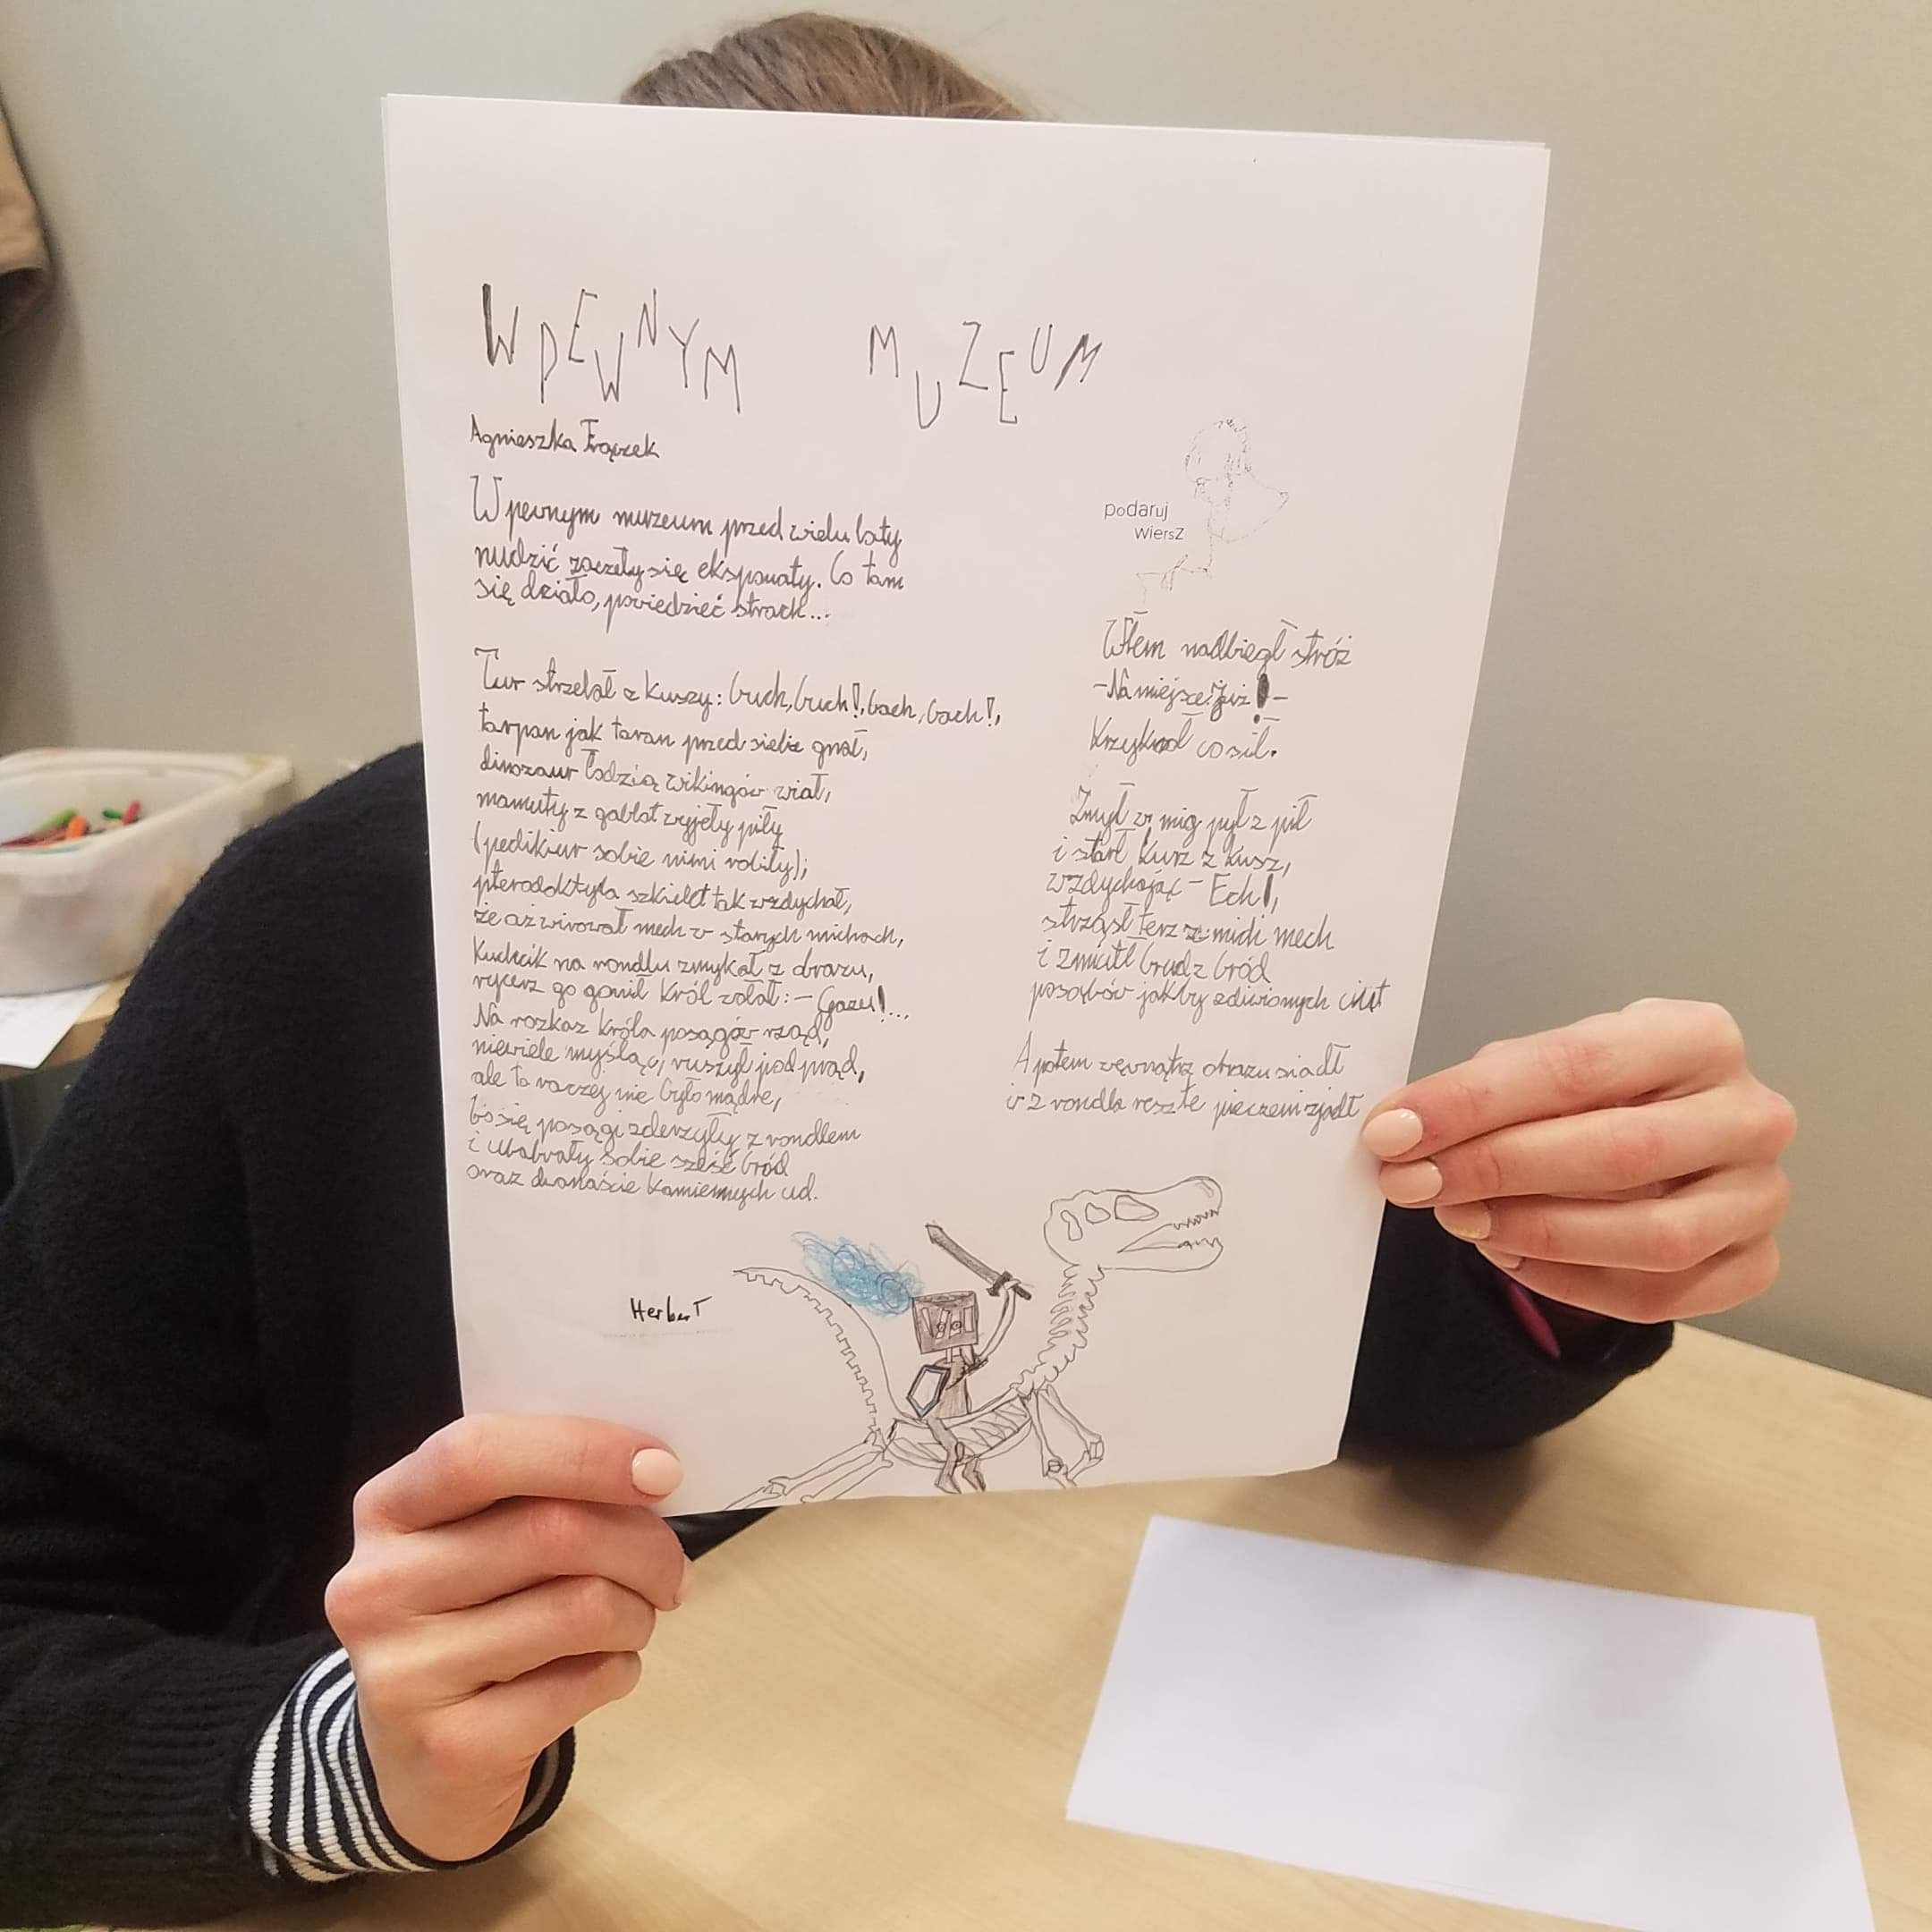 W PEWNYM MUZEUM
Agnieszka Frączek
W pewnym muzeum przed wielu laty
nudzić zaczęły się eksponaty. Co tam
się działo, powiedzieć strach...
Tur strzelał z kuszy: buch, buch!, bach, bach!,
tarpan jak taran przed siebie gnał,
dinozaur łodzią wikingów wiał,
mamuty z gablot wyjęły piły
(pedikiur sobie nimi robiły);
pterodaktyla szkielet tak wzdychał,
że aż wirował mech w starych michach,
Kuchcik na rondlu zmykał z obrazu,
rycerz go gonił Król wołał: – Gazu!...
Na rozkaz króla posągów rząd,
niewiele myśląc, ruszył pod prąd,
ale to raczej nie było mądre,
bo się posągi zderzyły z rondlem
i utrabrały sobie sześć bród
oraz dwanaście kamiennych ud.
HerberT
podaruj
wiersz
Wtem nadbiegł stróż
– Na miejsce! Już! –
Krzyknął co sił.
Zmył w mig pył z pił
i starł kurz z kusz,
wzdychając – Ech!,
strząsł też z mich mech
i zmiótł brud z bród
posągów jakby zdziwionych ciut
A potem wewnątrz obrazu siadł
i z rondla resztę pieczeni zjadł